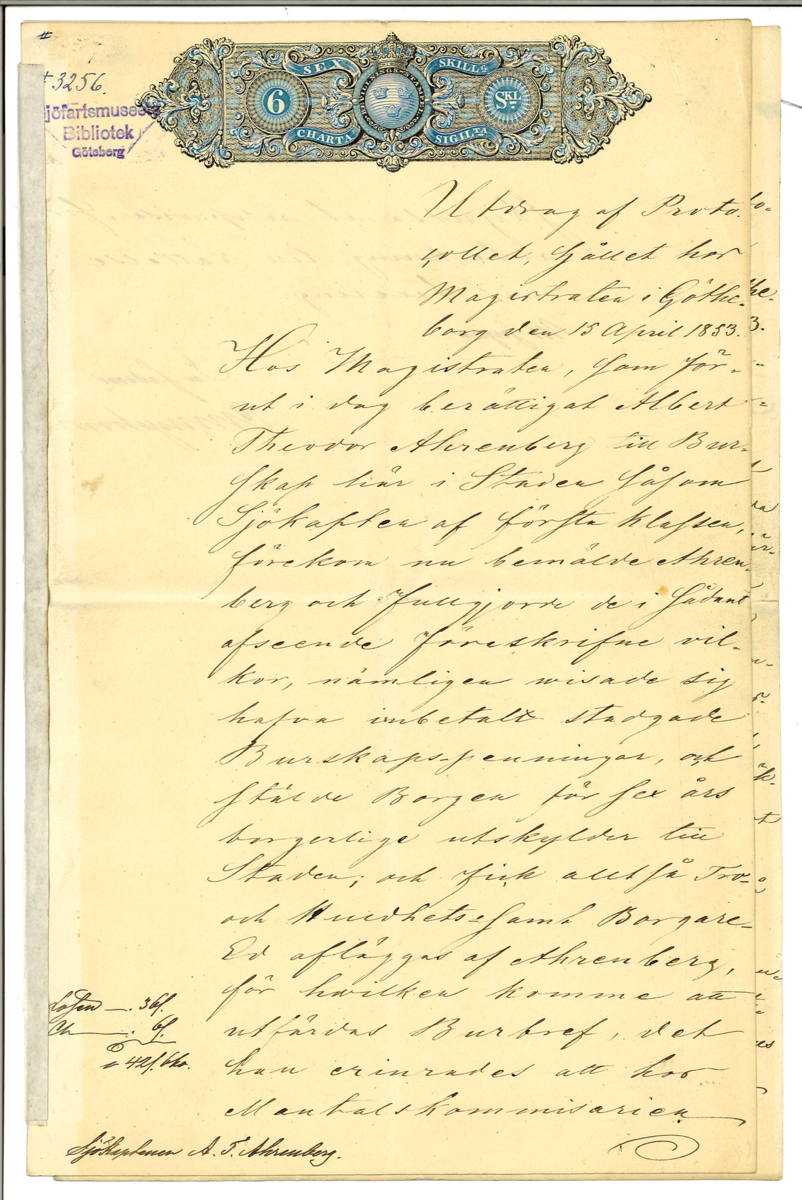 # 3256.
Sjöfartsmuseet
Bibliotek
Göteborg
SEX SKILLG
6 SKL
CHARTA SIGILTA
Utdrag af Proto-
collet, hållet hos
Magistraten i Göthe-
borg den 15 April 1853.
Hos Magistraten, som för-
ut i dag berättigat Albert
Theodor Ahrenberg till Bur-
skap här i Staden såsom
Sjökapten af första Klassen,
förekom nu bemälde Ahren-
berg och fullgjorde de i sådant
afseende föreskrifne vil-
kor, nämligen wisade sig
hafva inbetalt stadgade
Burskaps-penningar, och
stälde Borgen för sex års
borgerlige utskylder till
Staden; och fick alltså Tro-
och Huldhets- samt Borgare-
Ed afläggas af Ahrenberg,
för hwilken komme att
utfärdas Burbref, det
han erinrades att hos
Mantalskommisarien
Lösen — . 36 s.
Ch — . 6 s.
42 s. bko.
Sjökaptenen A. T. Ahrenberg.